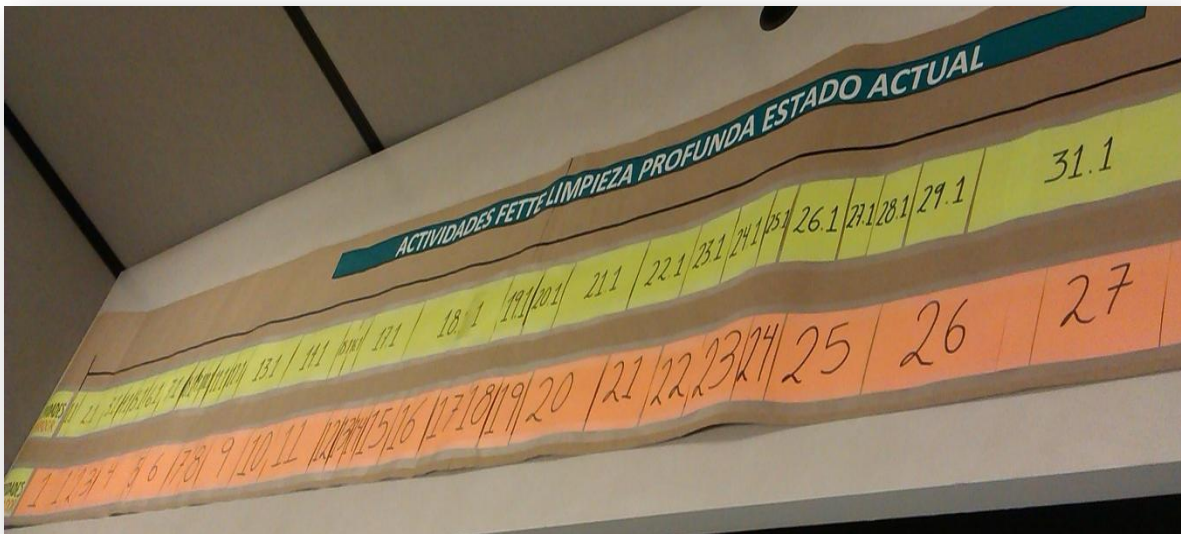 ACTIVIDADES FETTE LIMPIEZA PROFUNDA ESTADO ACTUAL
13.1 14.1 17.1 18.1 19.1 20.1 21.1 22.1 23.1 24.1 25.1 26.1 27.1 28.1 29.1 31.1
1 2 3 4 5 6 7 8 9 10 11 12 13 14 15 16 17 18 19 20 21 22 23 24 25 26 27